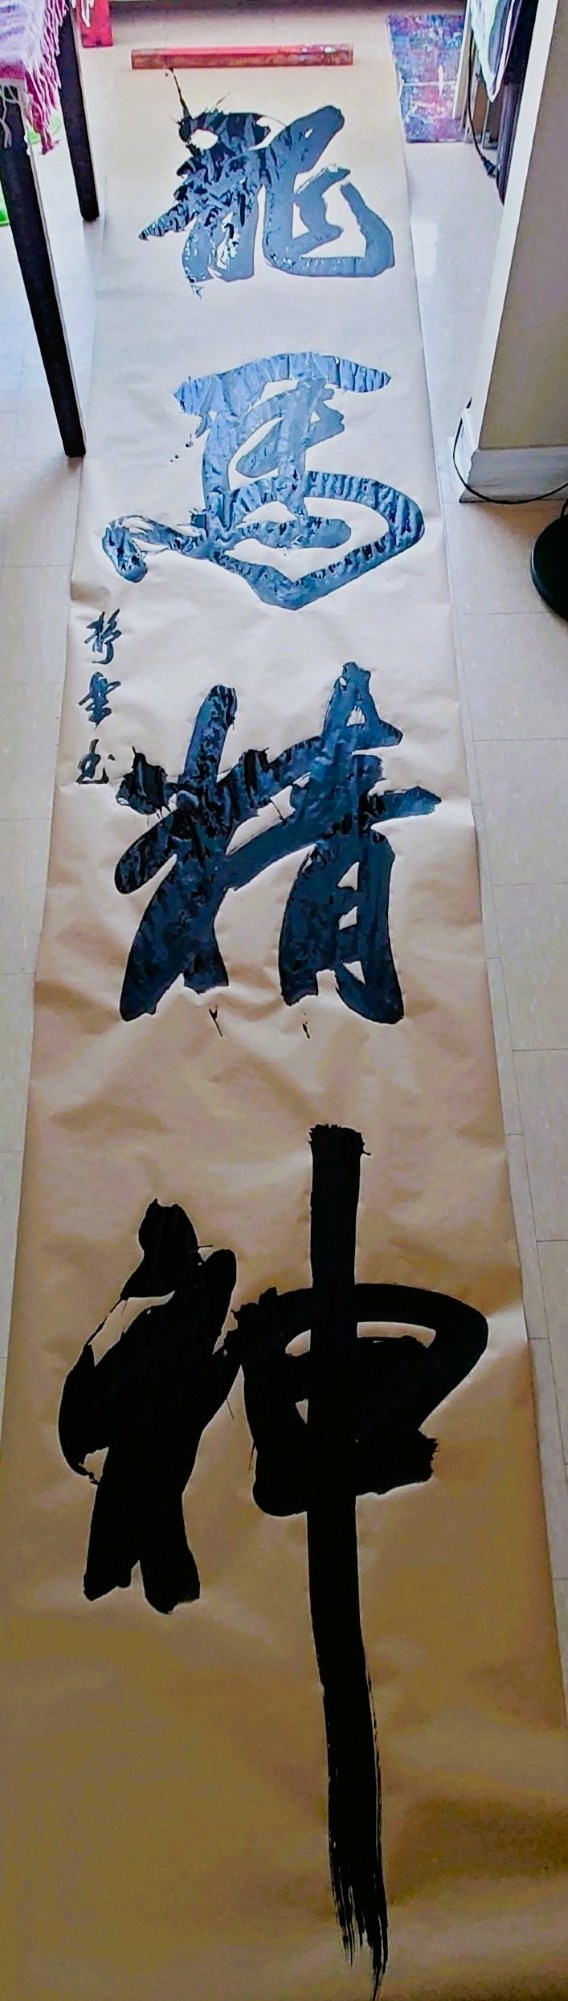 龍馬精神
書